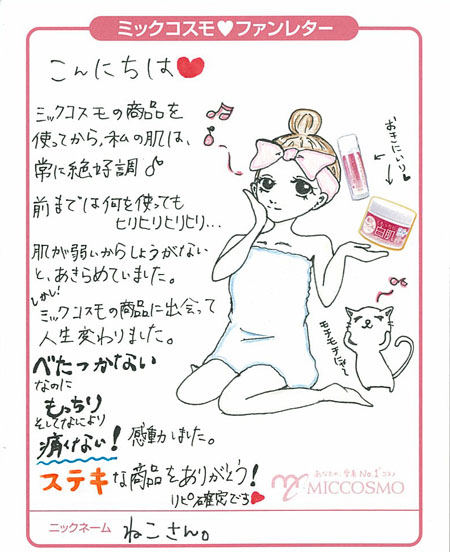 ミックコスモ♥ファンレター
こんにちは♥
ミックコスモの商品を
使ってから、私の肌は、
常に絶好調♪
前までは何を使っても
ヒリヒリヒリヒリ…
肌が弱いからしょうがない
と、あきらめていました。
しかし!
ミックコスモの商品に出会って
人生変わりました。
べたつかない
なのに
もっちり
そしてなにより
痛くない!
感動しました。
ステキな商品をありがとう!
リピ確定です♥
おきにいり♥
白肌
モチモチにゃ〜
あなたの、全員No.1コスメ
MICCOSMO
ニックネーム
ねこさん。